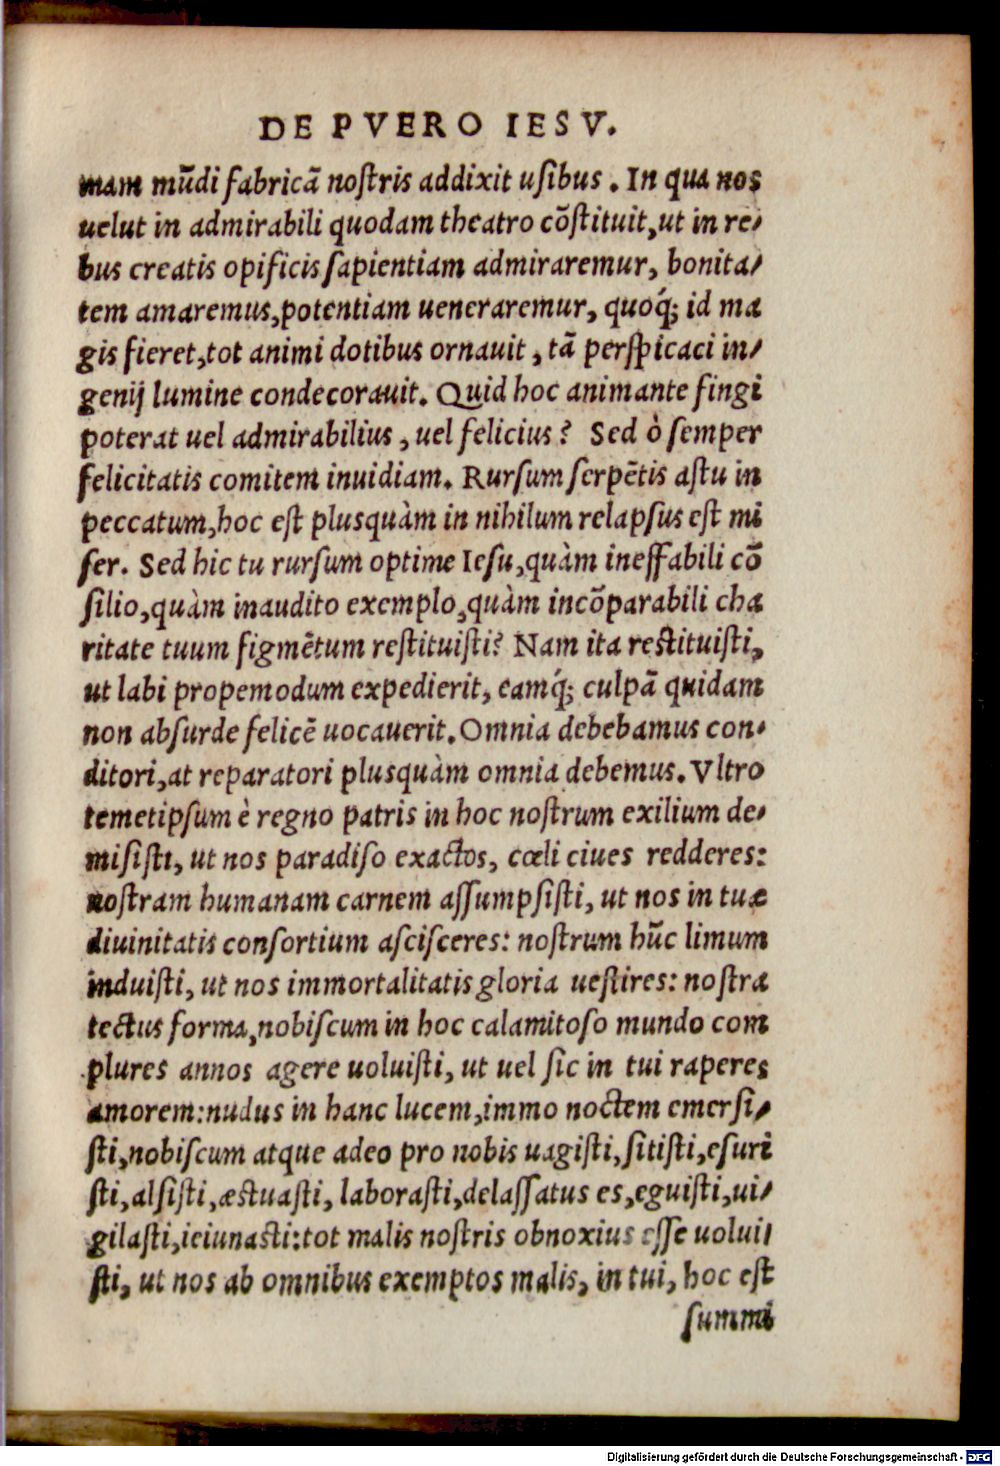 DE PVERO IESV.
mam mũdi fabricã noſtris addixit uſibus. In qua nos
uelut in admirabili quodam theatro cõſtituit, ut in re-
bus creatis opificis ſapientiam admiraremur, bonita-
tem amaremus, potentiam ueneraremur, quoq́; id ma
gis fieret, tot animi dotibus ornauit, tã perſpicaci in-
genij lumine condecorauit. Quid hoc animante fingi
poterat uel admirabilius, uel felicius? Sed ò ſemper
felicitatis comitem inuidiam. Rurſum ſerpẽtis aſtu in
peccatum, hoc eſt plusquàm in nihilum relapſus eſt mi
ſer. Sed hic tu rurſum optime Ieſu, quàm ineffabili cõ
ſilio, quàm inaudito exemplo, quàm incõparabili cha
ritate tuum figmẽtum reſtituiſti? Nam ita reſtituiſti,
ut labi propemodum expedierit, eamq́; culpã quidam
non abſurde felicẽ uocauerit. Omnia debebamus con-
ditori, at reparatori plusquàm omnia debemus. Vltro
temetipſum è regno patris in hoc noſtrum exilium de-
miſiſti, ut nos paradiſo exactos, cœli ciues redderes:
noſtram humanam carnem aſſumpſiſti, ut nos in tuæ
diuinitatis conſortium aſciſceres: noſtrum hũc limum
induiſti, ut nos immortalitatis gloria ueſtires: noſtra
tectus forma, nobiſcum in hoc calamitoſo mundo com
plures annos agere uoluiſti, ut uel ſic in tui raperes
amorem: nudus in hanc lucem, immo noctem emerſi-
ſti, nobiſcum atque adeo pro nobis uagiſti, ſitiſti, eſuri
ſti, alſiſti, æſtuaſti, laboraſti, delaſſatus es, eguiſti, ui-
gilaſti, ieiunaſti: tot malis noſtris obnoxius eſſe uolui
ſti, ut nos ab omnibus exemptos malis, in tui, hoc eſt
ſummi
Digitalisierung gefördert durch die Deutsche Forschungsgemeinschaft - DFG